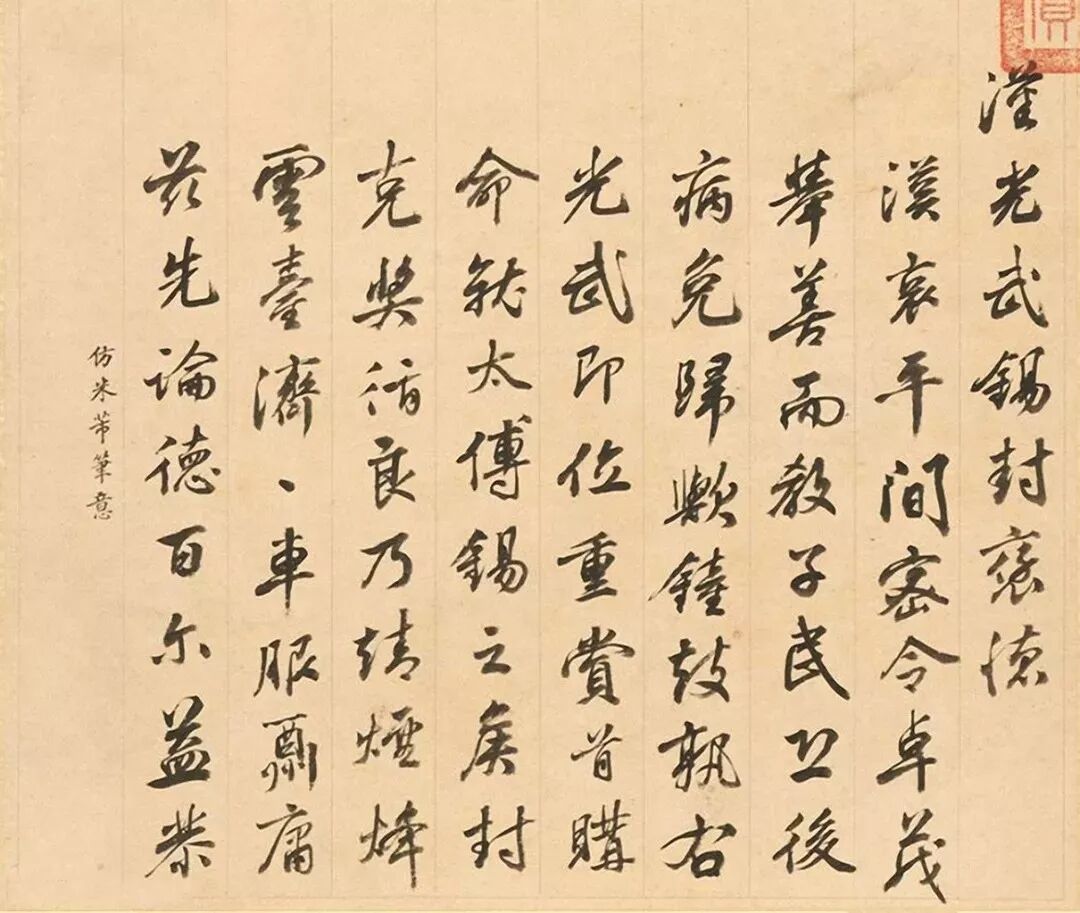 漢光武錫封褒德
漢哀平間密令卓茂
舉善而教子民恐後
病免歸歟鐘鼓孰右
光武即位重賞首購
命就太傅錫之侯封
克獎循良乃靖煙烽
雲臺濟、車服酬庸
茲先論德百尔益恭
仿米芾筆意